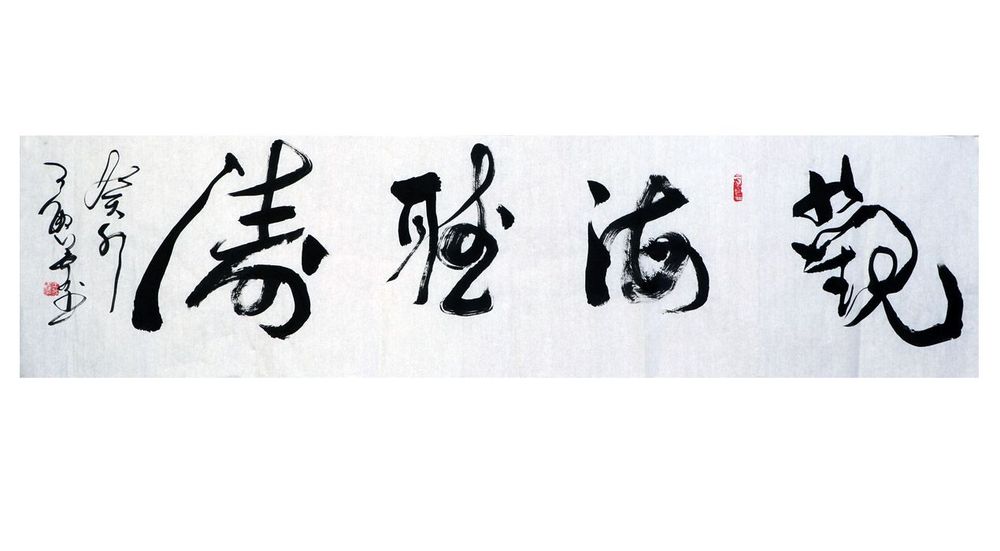 觀海聽濤
癸卯